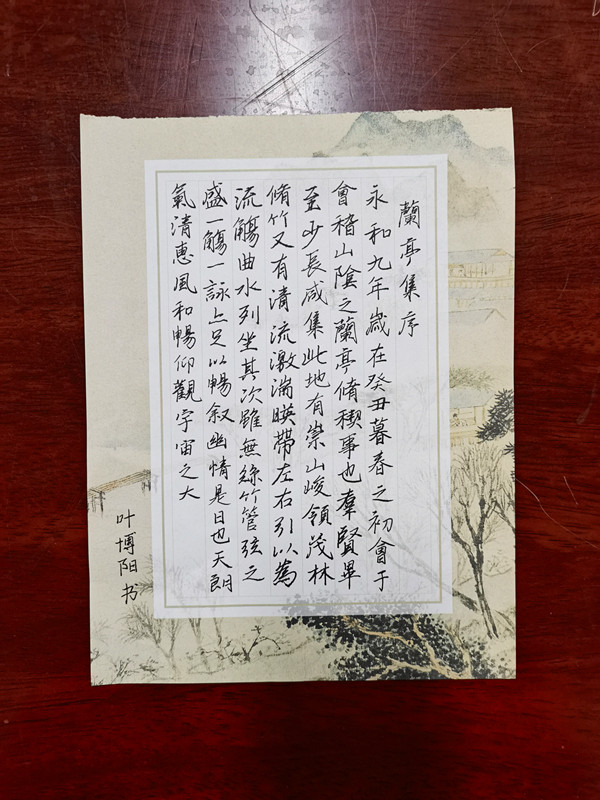 蘭亭集序
永和九年歲在癸丑暮春之初會于
會稽山陰之蘭亭脩稧事也羣賢畢
至少長咸集此地有崇山峻領茂林
脩竹又有清流激湍暎帶左右引以為
流觴曲水列坐其次雖無絲竹管弦之
盛一觴一詠上足以暢叙幽情是日也天朗
氣清惠風和暢仰觀宇宙之大
叶博阳书